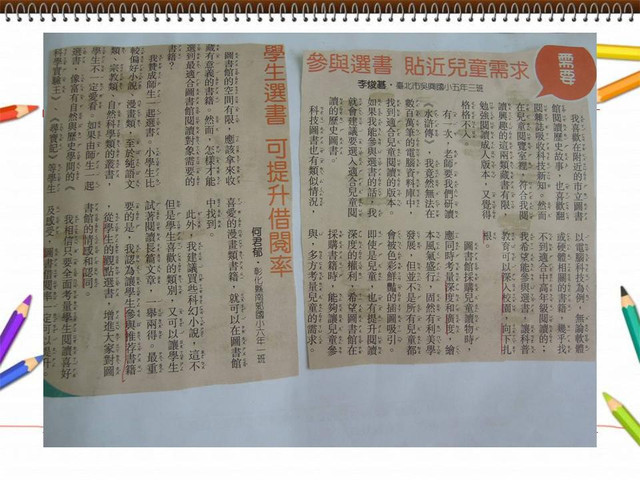 需要
參與選書 貼近兒童需求
李俊基・臺北市吳興國小五年三班
我喜歡在附近的市立圖書
館閱讀歷史故事,也喜歡翻
閱雜誌吸收科技新知。然而
在兒童閱覽室裡,符合我閱
讀興趣的這兩類藏書有限,
勉強閱讀成人版本,又覺得
格格不入。
有一次,老師要我們研讀
《水滸傳》,我竟然無法在
數百萬筆的電腦資料庫中,
找到適合兒童閱讀的版本。
如果我能參與選書的話,我
就會建議要選入適合兒童閱
讀的歷史圖書。
科技圖書也有類似情況,
以電腦科技為例,無論軟體
或硬體相關的書籍,幾乎找
不到適合中高年級閱讀的;
我希望能參與選書,讓科普
教育可以深入校園、向下扎
根。
圖書館採購兒童讀物時,
應同時考量深度和廣度,繪
本風氣盛行,固然有利美學
發展,但並不是所有兒童都
會被色彩鮮豔的插圖吸引。
即使是兒童,也有提升閱讀
深度的權利。希望圖書館在
採購書籍時,能夠讓兒童參
與,多方考量兒童的需求。
學生選書 可提升借閱率
何君郁・彰化縣南郭國小六年一班
圖書館的空間有限,應該拿來收
藏有意義的書籍。然而,怎樣才能
選到最適合圖書館閱讀對象需要的
書籍?
我贊成師生一起選書。小學生比
較偏好小說、漫畫類,至於純語文
類、宗教類、自然科學類的書籍,
學生不一定愛看。如果由師生一起
選書,像富有自然與歷史學問的《
科學實驗王》、《尋寶記》等學生
喜愛的漫畫類書籍,就可以在圖書館
中找到。
此外,我建議買科幻小說,這不
但是學生喜歡的類別,又可以讓學生
試著閱讀長篇文章,一舉兩得。最重
要的是,我認為讓學生參與推荐書籍
,從學生的觀點選書,增進大家對圖
書館的情感和認同。
我相信只要全面考量學生閱讀喜好
及感受,圖書借閱率一定可以提升